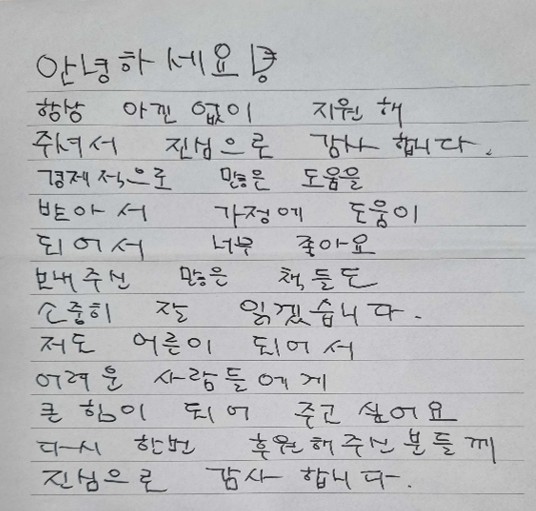 안녕하세요
항상 아낌 없이 지원 해
주셔서 진심으로 감사 합니다.
경제적으로 많은 도움을
받아서 가정에 도움이
되어서 너무 좋아요
보내주신 많은 책들도
소중히 잘 읽겠습니다.
저도 어른이 되어서
어려운 사람들에게
큰 힘이 되어 주고 싶어요
다시 한번 후원해주신분들께
진심으로 감사 합니다.